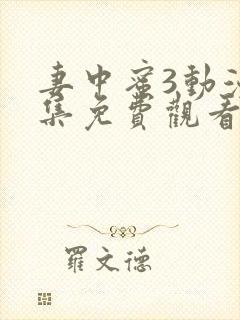 妻中蜜3動
集免費觀看
羅文德